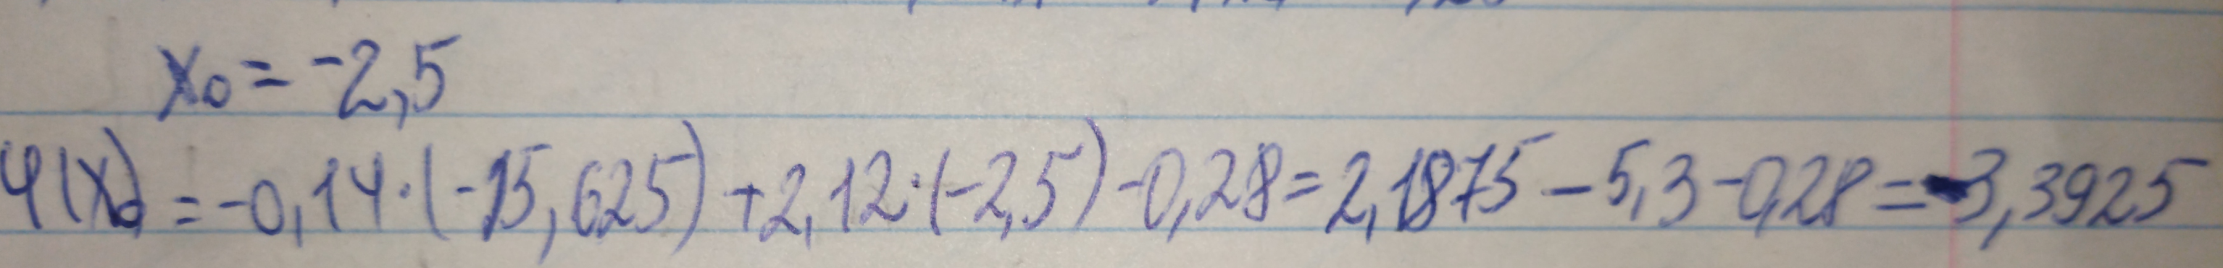 x₀ = -2,5
φ(x₀) = -0,14·(-15,625) + 2,12·(-2,5) - 0,28 = 2,1875 - 5,3 - 0,28 = -3,3925